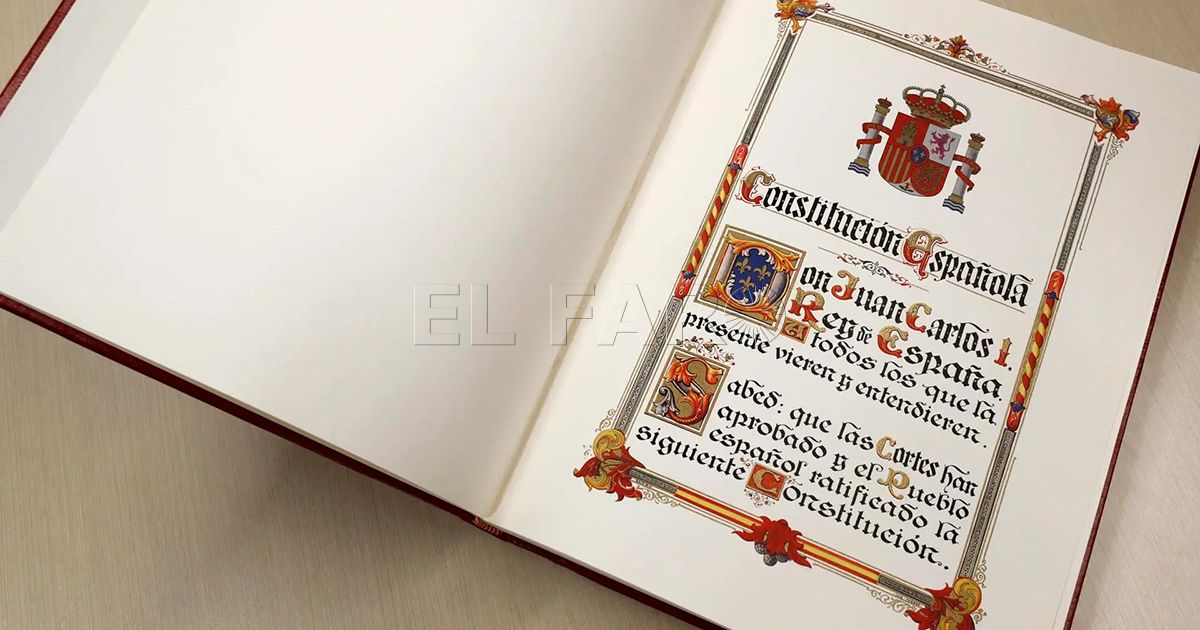 Constitución Española
Don Juan Carlos I,
Rey de España.
A todos los que la
presente vieren y entendieren.
Sabed: que las Cortes han
aprobado y el Pueblo
español ratificado la
siguiente Constitución..
EL FARO